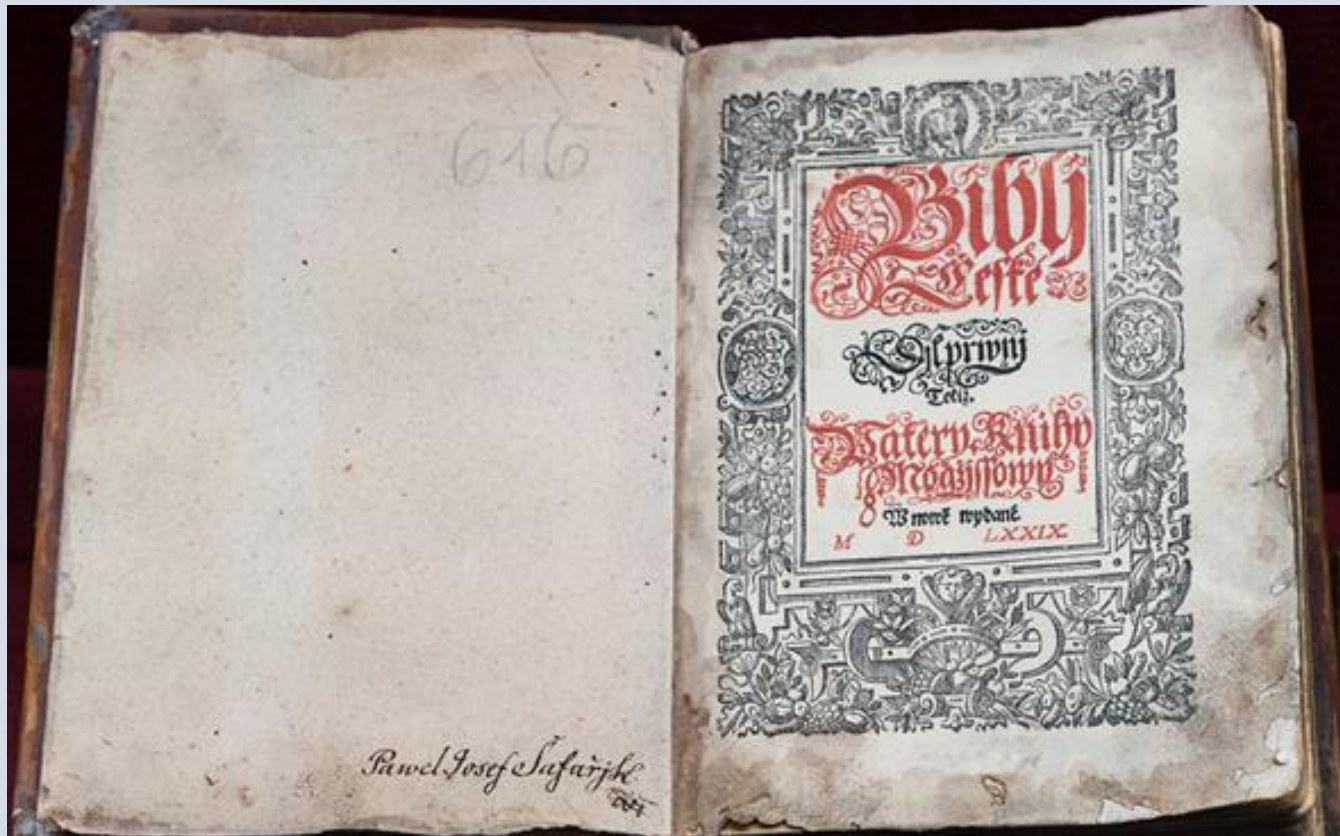 616
Pawel Josef Šafařjk
Biblj
České
Djl prwnj
Totiž.
Patery Knihy
Mogžjssowy
W nowě wydané.
M D LXXIX.